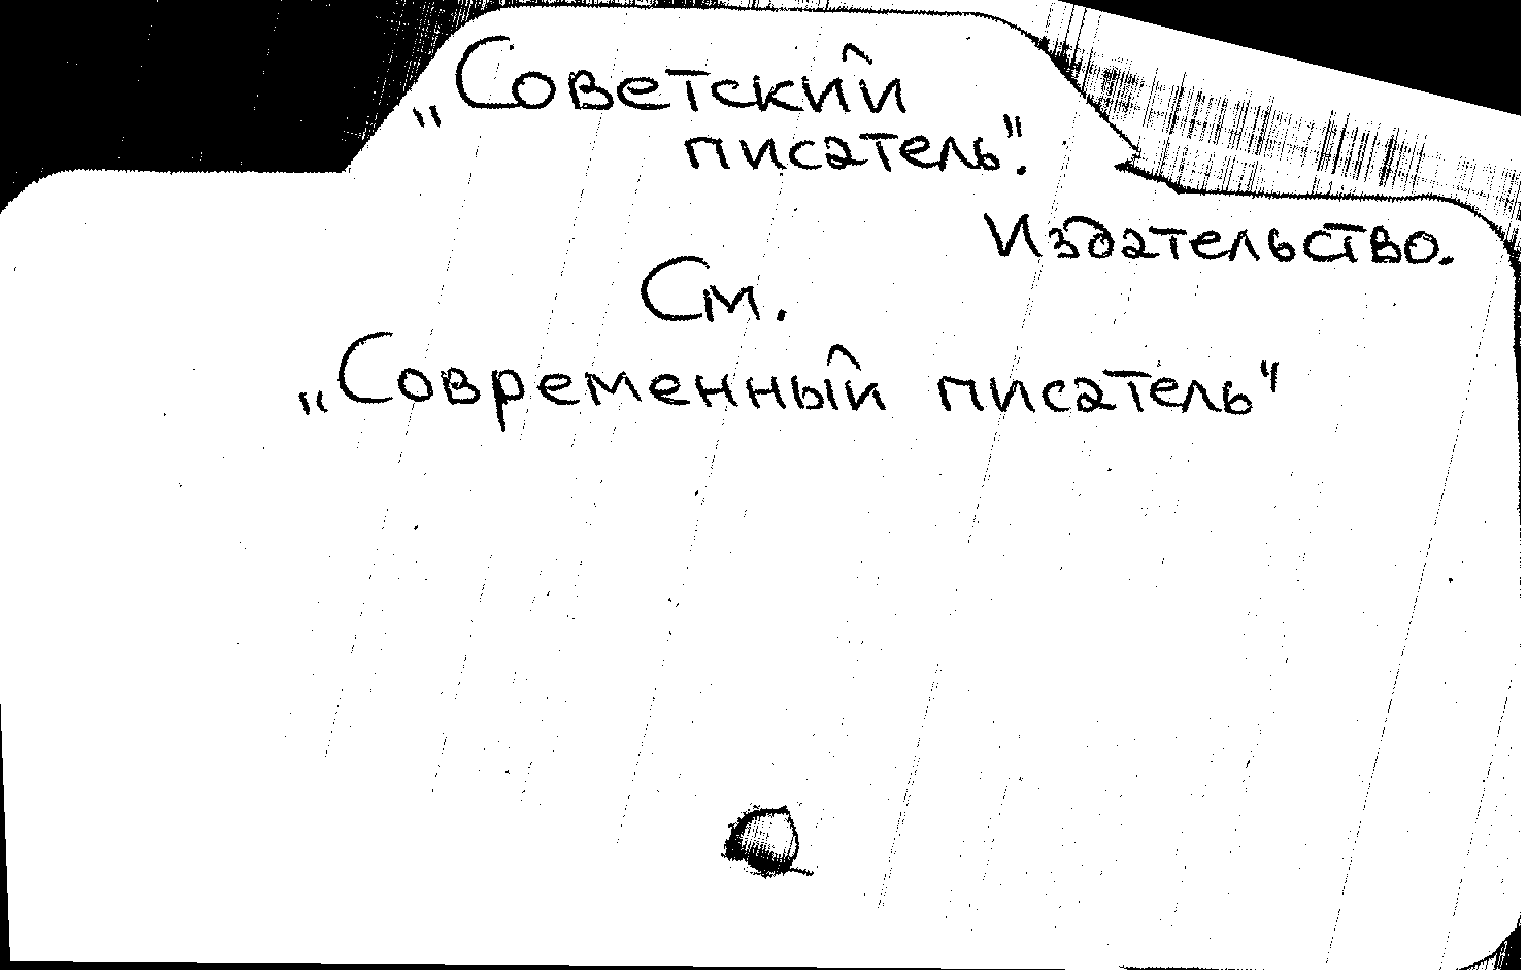 „Советский
писатель".
Издательство.
См.
„Современный писатель"